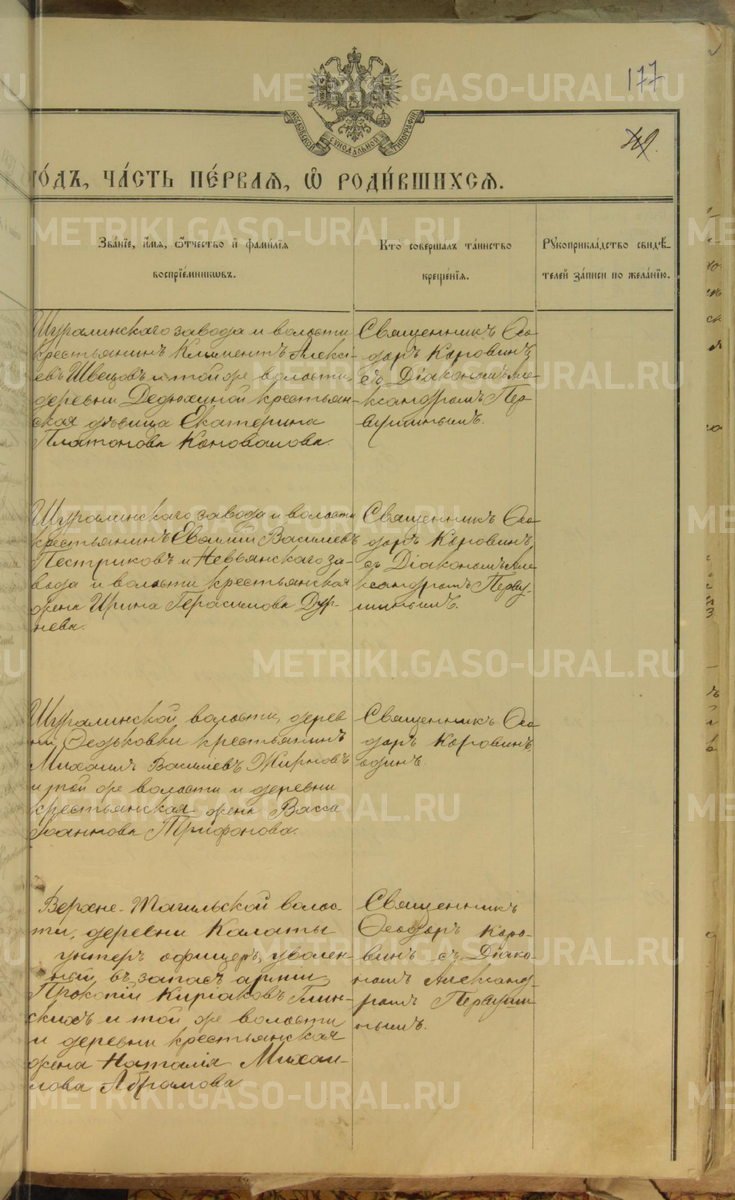 177
МОСКОВСКОЙ СѴНОДАЛЬНОЙ ТИПОГРАФІИ
го́дъ, ча́сть пе́рваѧ, ѡ҆ роди́вшихсѧ.
Зва́ніе, и҆́мѧ, ѻ҆́тчество и҆ фами́лїѧ
воспрїе́мниковъ.
Кто соверша́лъ та́инство
креще́нїѧ.
Рꙋкоприкла́дство свидѣ́-
телей за́писи по жела́нїю.
Шуралинскаго завода и волости
крестьянинъ Климентъ Алексѣ-
евъ Швецовъ и той же волости,
деревни Дедюхиной крестьян-
ская дѣвица Екатерина
Платонова Коновалова.
Священникъ Ѳео-
доръ Коровинъ
съ Діакономъ Але-
ксандромъ Пер-
вушинымъ.
Шуралинскаго завода и волости
крестьянинъ Евѳимій Василіевъ
Пестриковъ и Невьянскаго за-
вода и волости крестьянская
жена Ирина Герасимова Дур-
нева.
Священникъ Ѳео-
доръ Коровинъ,
съ Діакономъ Але-
ксандромъ Перву-
шинымъ.
Шуралинской волости, дерев
ни Ѳедьковки крестьянинъ
Михаилъ Василіевъ Жирновъ
и той же волости и деревни
крестьянская жена Васса
Іоаннова Трифонова.
Священникъ Ѳео-
доръ Коровинъ
одинъ.
Верхне-Тагильской волос-
ти, деревни Калаты
унтеръ офицеръ, уволен
ный въ запасъ арміи
Прокопій Киріаковъ Глин-
скихъ и той же волости
и деревни крестьянская
жена Наталія Михаи-
лова Абрамова
Священникъ
Ѳеодоръ Коро-
винъ съ Діако-
номъ Александ-
ромъ Первуши
нымъ.
METRIKI.GASO-URAL.RU